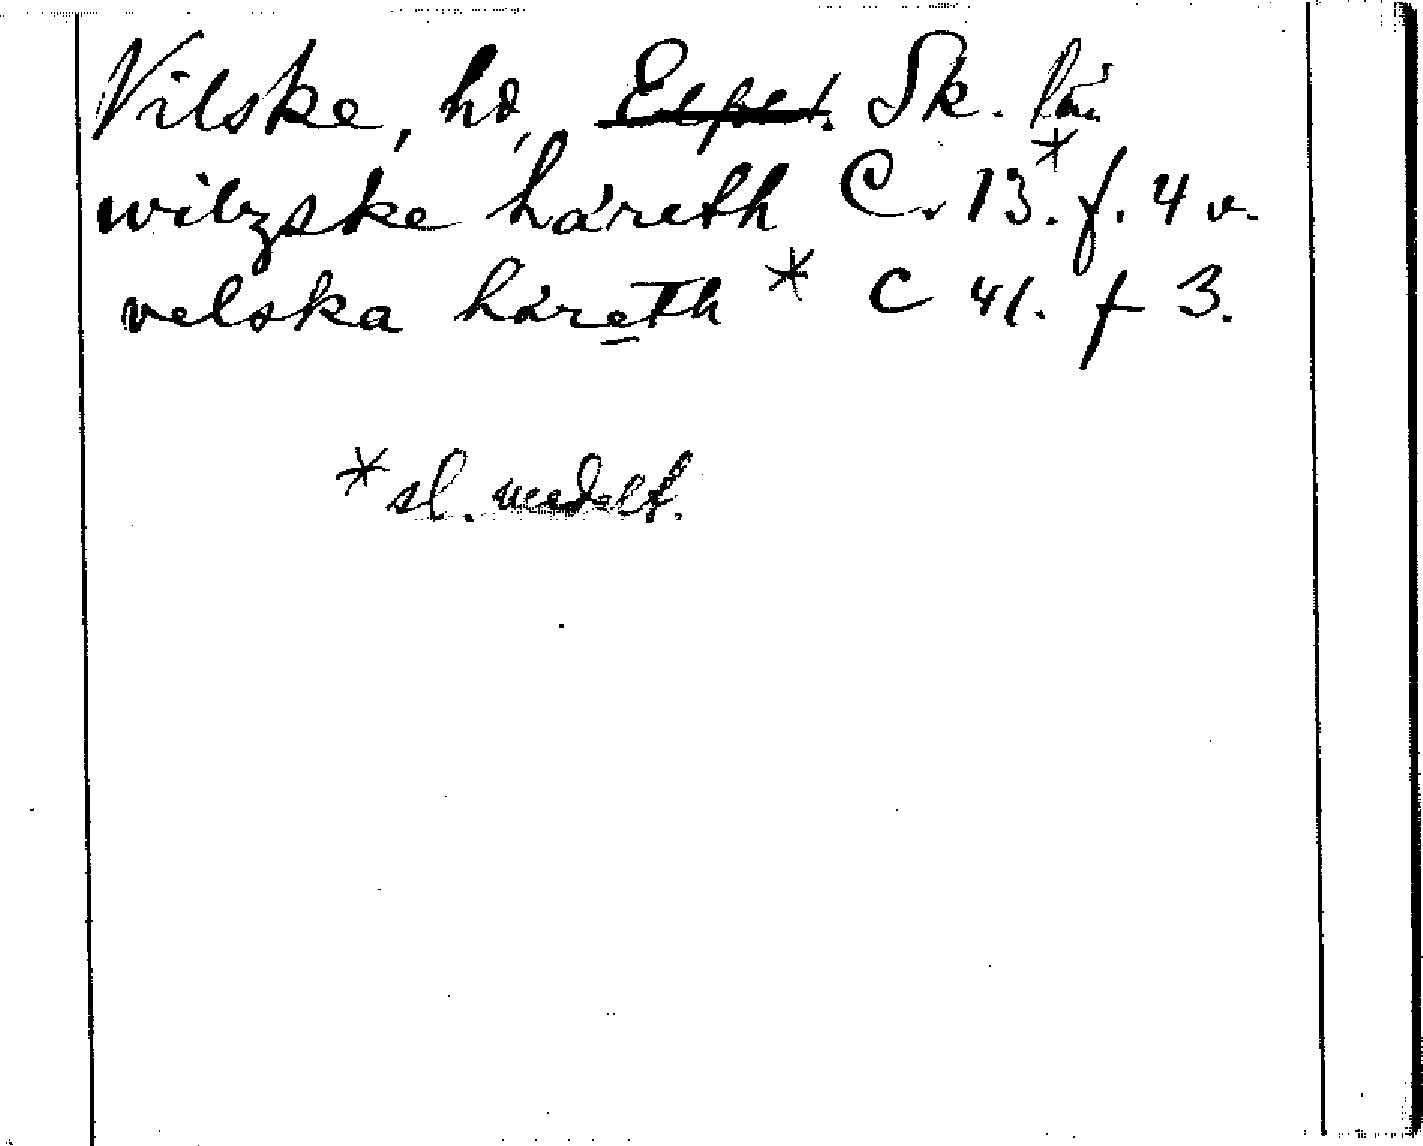 Vilske, hd, Sk. län
wilzske håreth C. 13.* f. 4 v.
velska håreth * C 41. f 3.
* sl. medelt.